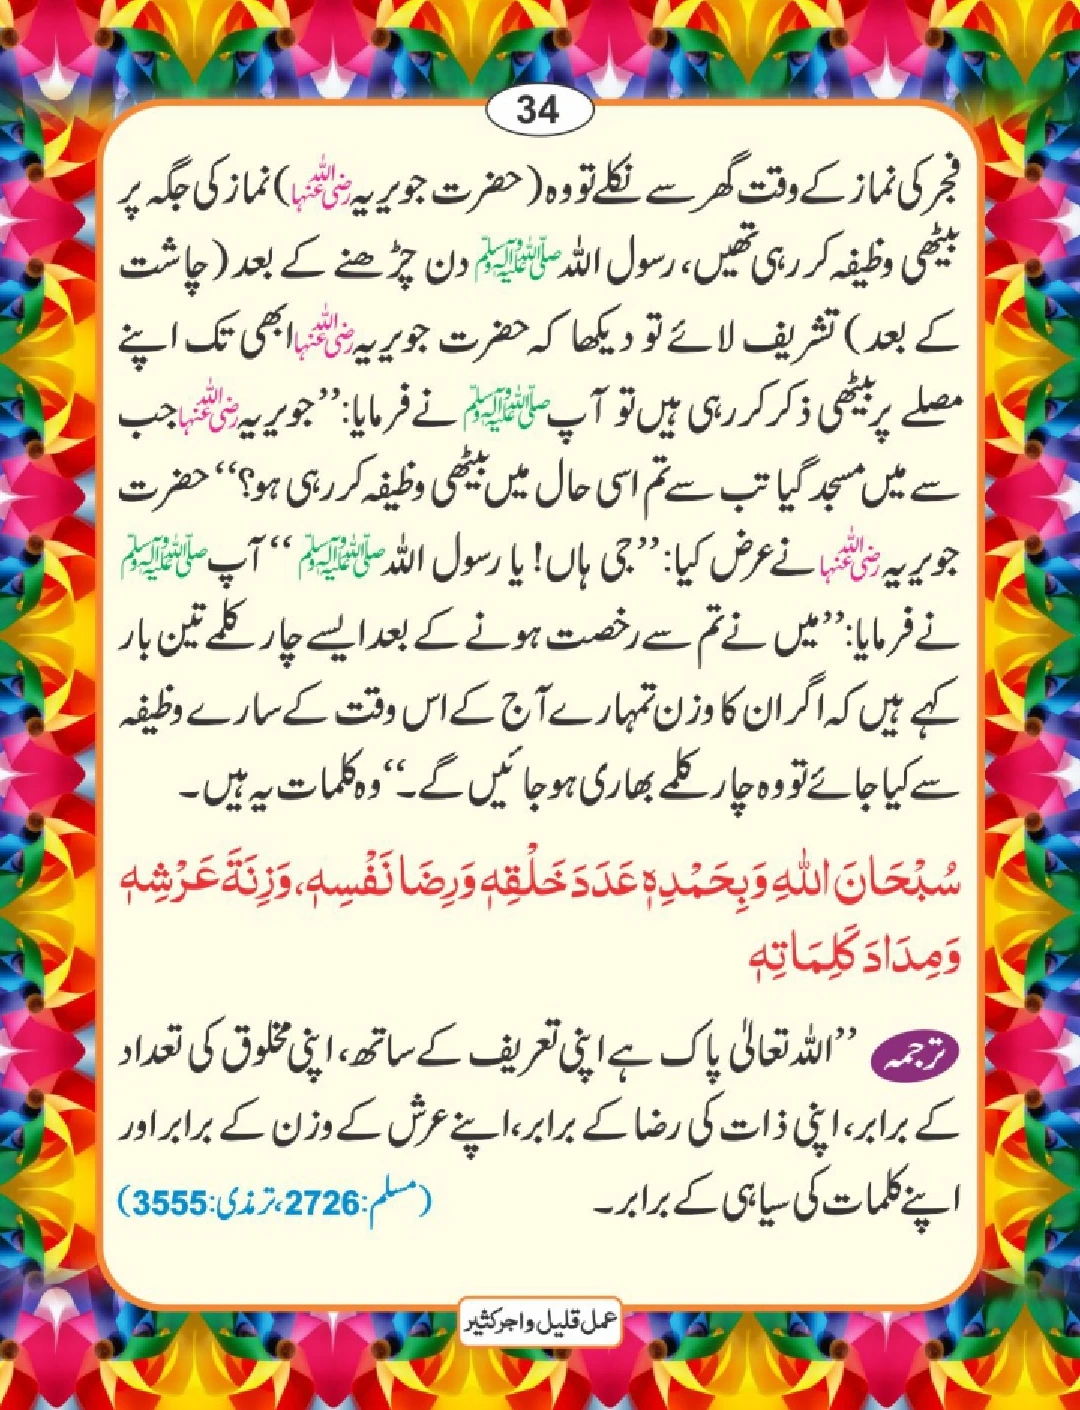 34
فجر کی نماز کے وقت گھر سے نکلے تو وہ (حضرت جویریہ رضی اللہ عنہا) نماز کی جگہ پر
بیٹھی وظیفہ کر رہی تھیں، رسول اللہ صلی اللہ علیہ وآلہ وسلم دن چڑھنے کے بعد (چاشت
کے بعد) تشریف لائے تو دیکھا کہ حضرت جویریہ رضی اللہ عنہا ابھی تک اپنے
مصلے پر بیٹھی ذکر کر رہی ہیں تو آپ صلی اللہ علیہ وآلہ وسلم نے فرمایا: ”جویریہ رضی اللہ عنہا جب
سے میں مسجد گیا تب سے تم اسی حال میں بیٹھی وظیفہ کر رہی ہو؟“ حضرت
جویریہ رضی اللہ عنہا نے عرض کیا: ”جی ہاں! یا رسول اللہ صلی اللہ علیہ وآلہ وسلم“ آپ صلی اللہ علیہ وآلہ وسلم
نے فرمایا: ”میں نے تم سے رخصت ہونے کے بعد ایسے چار کلمے تین بار
کہے ہیں کہ اگر ان کا وزن تمہارے آج کے اس وقت کے سارے وظیفہ
سے کیا جائے تو وہ چار کلمے بھاری ہو جائیں گے۔“ وہ کلمات یہ ہیں۔
سُبْحَانَ اللّٰهِ وَبِحَمْدِهٖ عَدَدَ خَلْقِهٖ وَرِضَا نَفْسِهٖ، وَزِنَةَ عَرْشِهٖ
وَمِدَادَ كَلِمَاتِهٖ
ترجمہ ”اللہ تعالیٰ پاک ہے اپنی تعریف کے ساتھ، اپنی مخلوق کی تعداد
کے برابر، اپنی ذات کی رضا کے برابر، اپنے عرش کے وزن کے برابر اور
اپنے کلمات کی سیاہی کے برابر۔ (مسلم: 2726، ترمذی: 3555)
عمل قلیل واجر کثیر